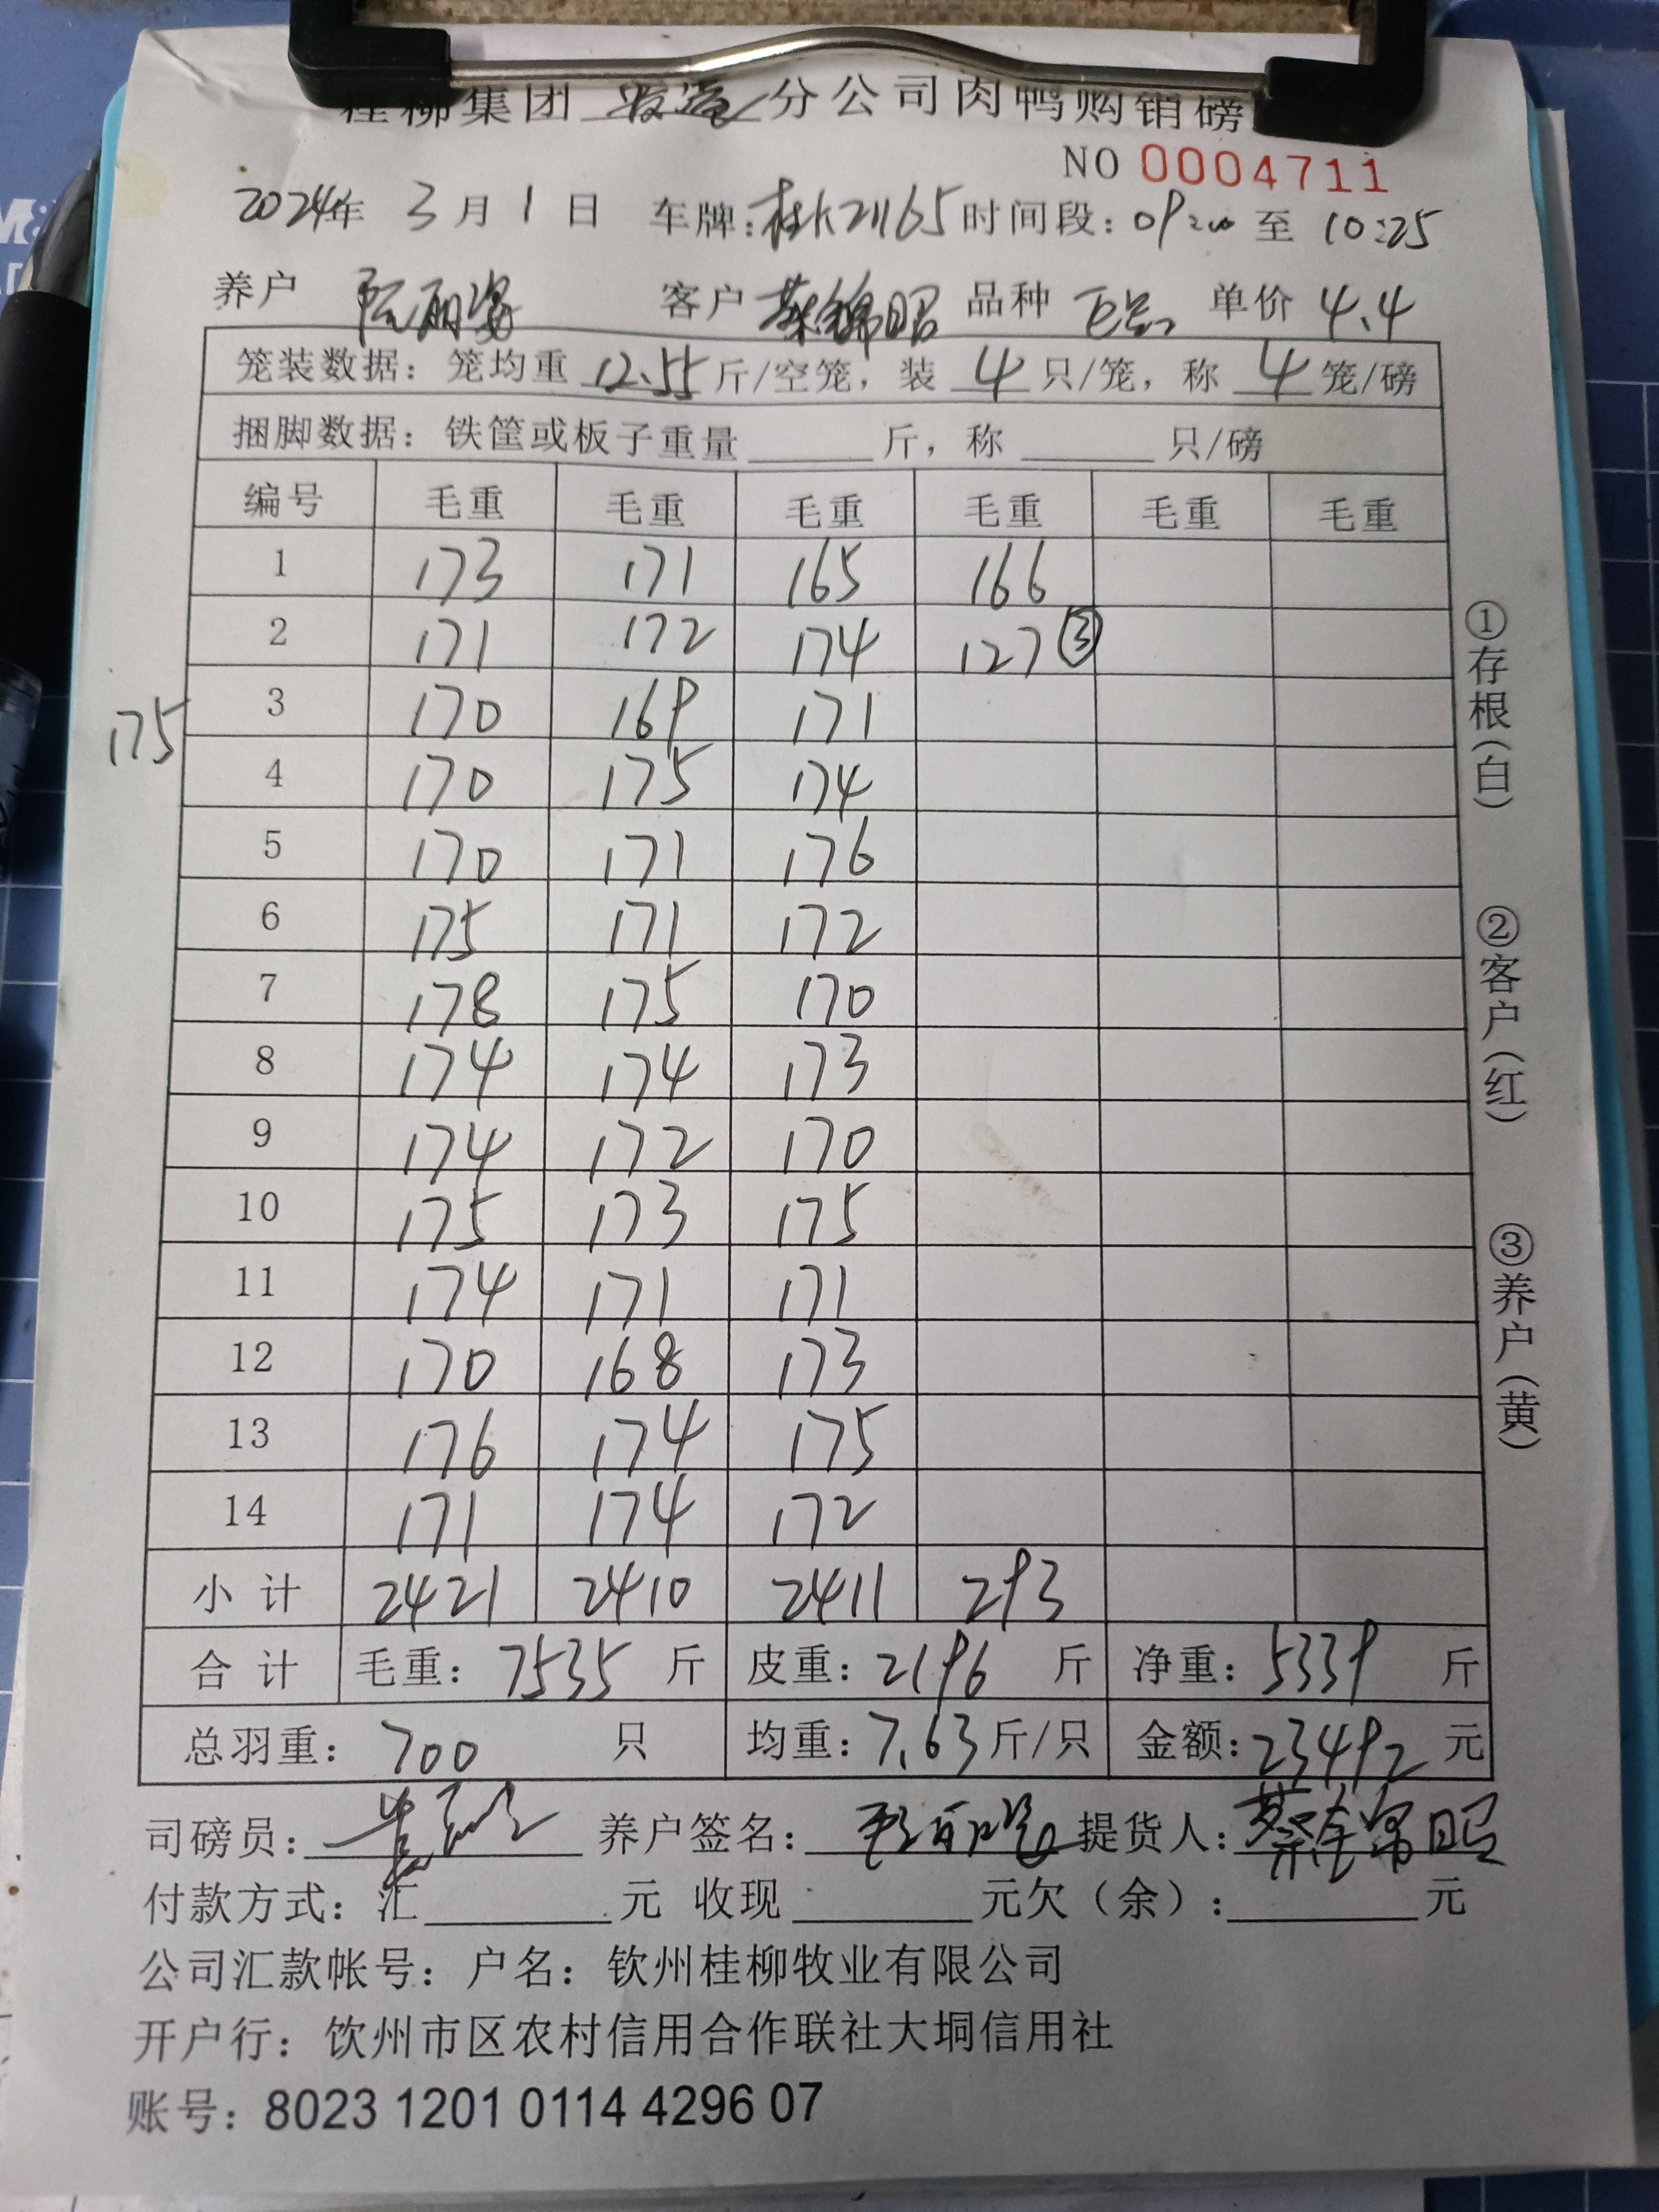 桂柳集团 分公司肉鸭购销磅
NO 0004711
2024年 3月1日 车牌:桂K21165 时间段:09:00 至 10:25
养户 阮丽婆 客户 蔡锦昭 品种 单价 4.4
笼装数据:笼均重 12.55 斤/空笼,装 4 只/笼,称 4 笼/磅
捆脚数据:铁筐或板子重量 斤,称 只/磅
编号 毛重 毛重 毛重 毛重 毛重 毛重
1 173 171 165 166
2 171 172 174 127 ③
3 170 169 171
175
4 170 175 174
5 170 171 176
6 175 171 172
7 178 175 170
8 174 174 173
9 174 172 170
10 175 173 175
11 174 171 171
12 170 168 173
13 176 174 175
14 171 174 172
小计 2421 2410 2411 293
合计 毛重:7535 斤 皮重:2196 斤 净重:5339 斤
总羽重:700 只 均重:7.63 斤/只 金额:23492 元
司磅员: 养户签名: 提货人:蔡锦昭
付款方式:汇 元 收现 元欠(余): 元
公司汇款帐号:户名:钦州桂柳牧业有限公司
开户行:钦州市区农村信用合作联社大垌信用社
账号:8023 1201 0114 4296 07
①存根(白)
②客户(红)
③养户(黄)